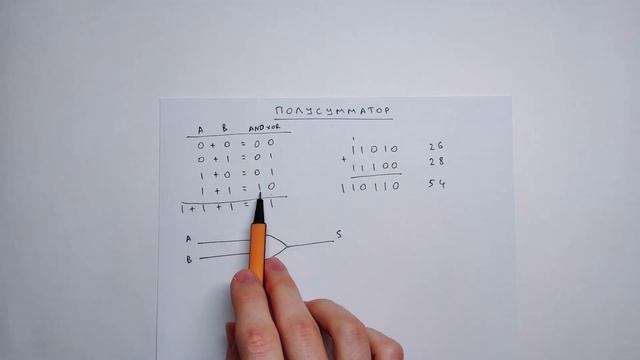 ПОЛУСУММАТОР
A B AND XOR
0 + 0 = 0 0
0 + 1 = 0 1
1 + 0 = 0 1
1 + 1 = 1 0
1 + 1 + 1 = 1
1
11010 26
+
11100 28
110110 54
A
B
S